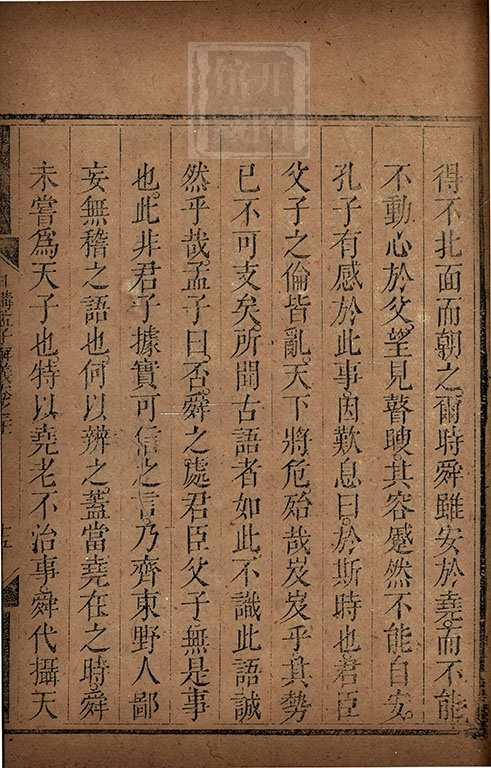 得不北面而朝之爾時舜雖安於堯而不能
不動心於父望見瞽瞍其容蹙然不能自安
孔子有感於此事因歎息曰於斯時也君臣
父子之倫皆亂天下將危殆哉岌岌乎其勢
已不可支矣所聞古語者如此不識此語誠
然乎哉孟子曰否舜之處君臣父子無是事
也此非君子據實可信之言乃齊東野人鄙
妄無稽之語也何以辨之蓋當堯在之時舜
未嘗爲天子也特以堯老不治事舜代攝天
日講孟子解義卷之
十五